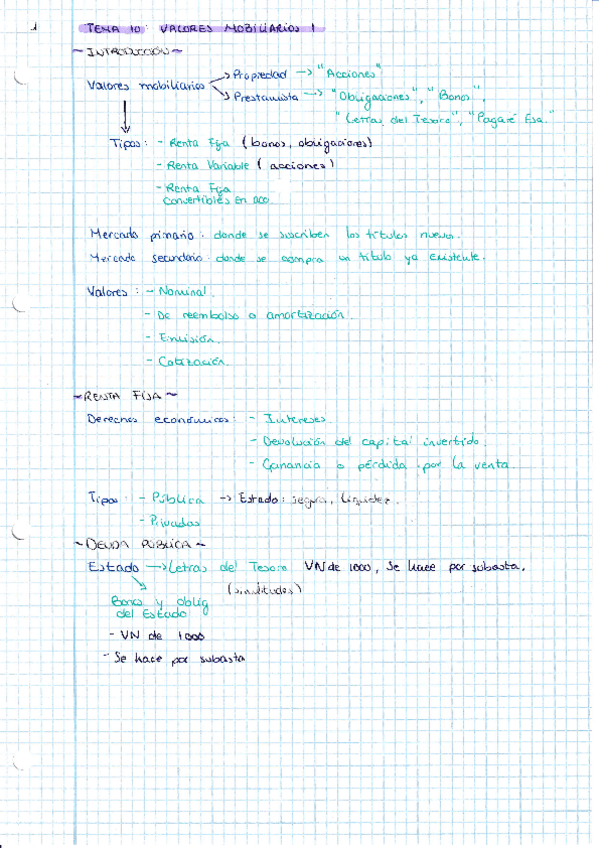 1
TEMA 10: VALORES MOBILIARIOS I
~INTRODUCCIÓN~
Valores mobiliarios → Propiedad → "Acciones"
→ Prestamista → "Obligaciones", "Bonos",
"Letras del Tesoro", "Pagaré Esa."
Tipos: - Renta Fija (bonos, obligaciones)
- Renta Variable (acciones)
- Renta Fija
Convertibles en acc
Mercado primario: donde se suscriben los títulos nuevos.
Mercado secundario: donde se compra un título ya existente.
Valores: - Nominal.
- De reembolso o amortización.
- Emisión.
- Cotización.
~RENTA FIJA~
Derechos económicos: - Intereses.
- Devolución del capital invertido.
- Ganancia o pérdida por la venta.
Tipos: - Pública → Estado: segura, liquidez.
- Privadas
~DEUDA PÚBLICA~
Estado → Letras del Tesoro VN de 1000, Se hace por subasta.
(similitudes)
Bonos y oblig
del Estado
- VN de 1000
- Se hace por subasta